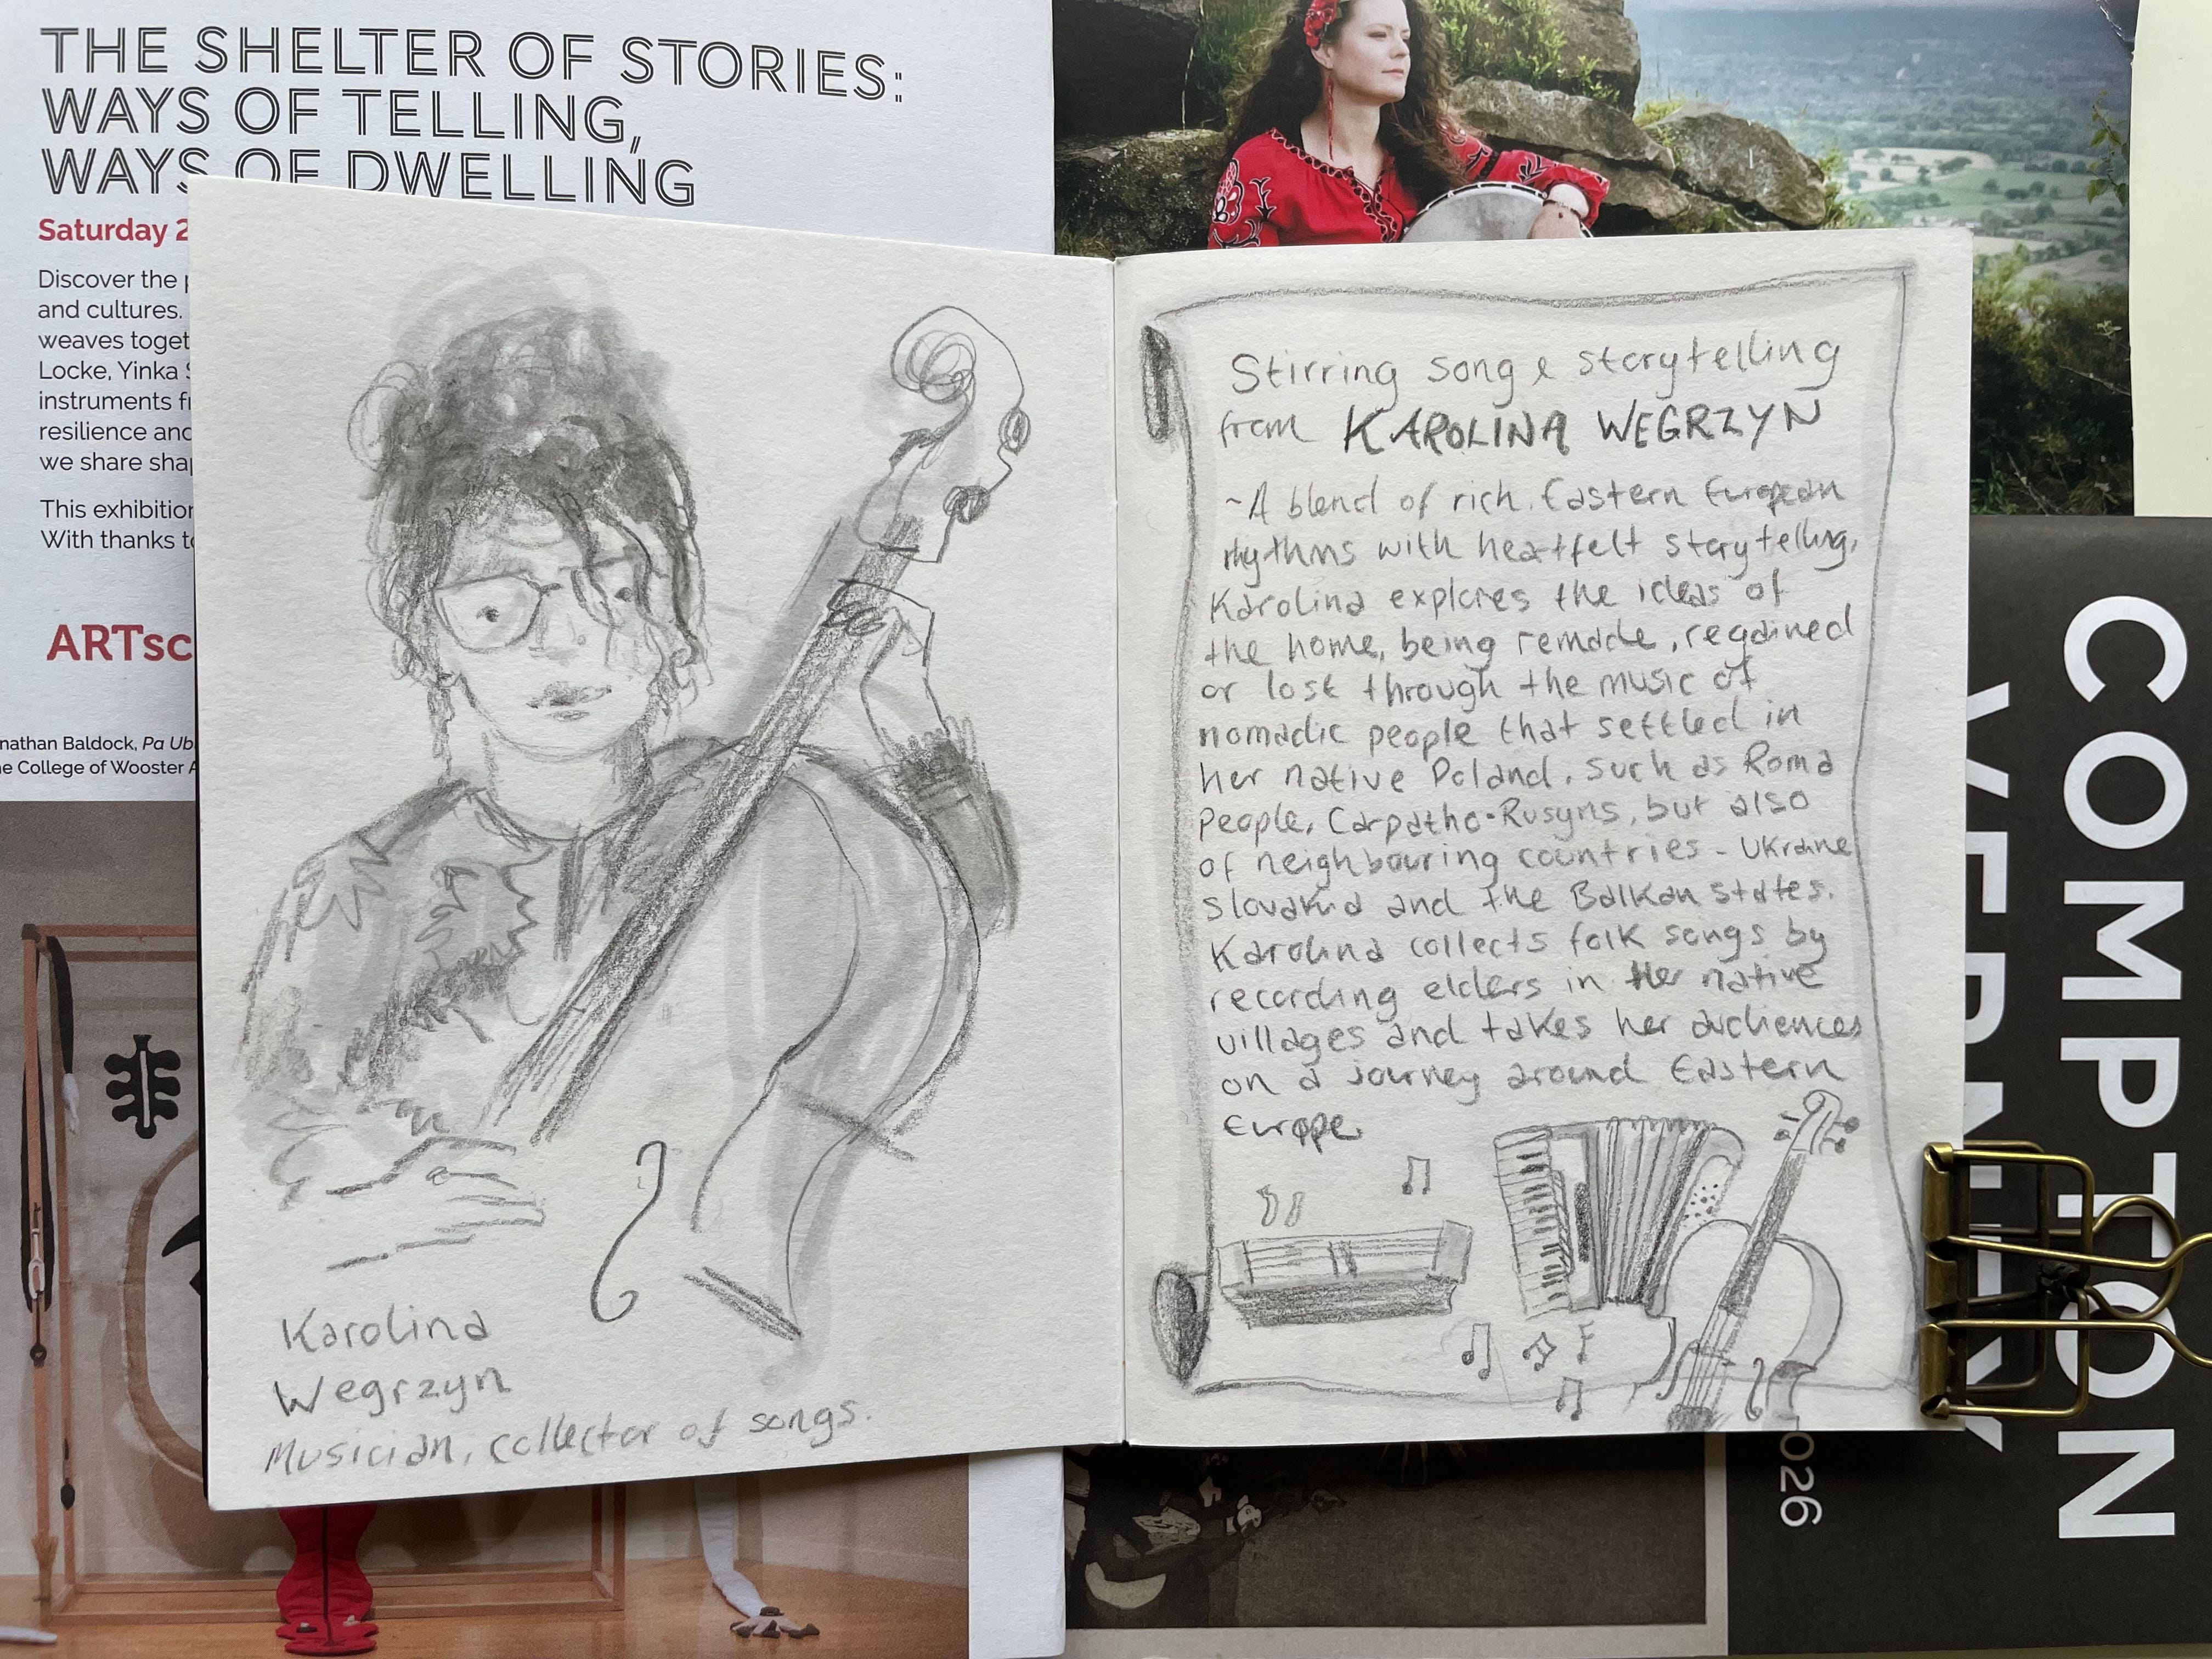 THE SHELTER OF STORIES:
WAYS OF TELLING,
WAYS OF DWELLING
Saturday 2
Discover the
and cultures.
weaves toget
Locke, Yinka
instruments
resilience and
we share
This exhibition
With thanks
ARTsc
nathan Baldock, Pa Ub
College of Wooster
Karolina
Wegrzyn
Musician, collector of songs.
Stirring song & storytelling
from KAROLINA WEGRZYN
~A blend of rich, Eastern European
rhythms with heartfelt storytelling,
Karolina explores the ideas of
the home, being remade, regained
or lost through the music of
nomadic people that settled in
her native Poland, such as Roma
People, Carpatho-Rusyns, but also
of neighbouring countries - Ukraine
Slovakia and the Balkan states.
Karolina collects folk songs by
recording elders in Her native
villages and takes her audiences
on a journey around Eastern
Europe.
COMPTON
VERNEY
2026